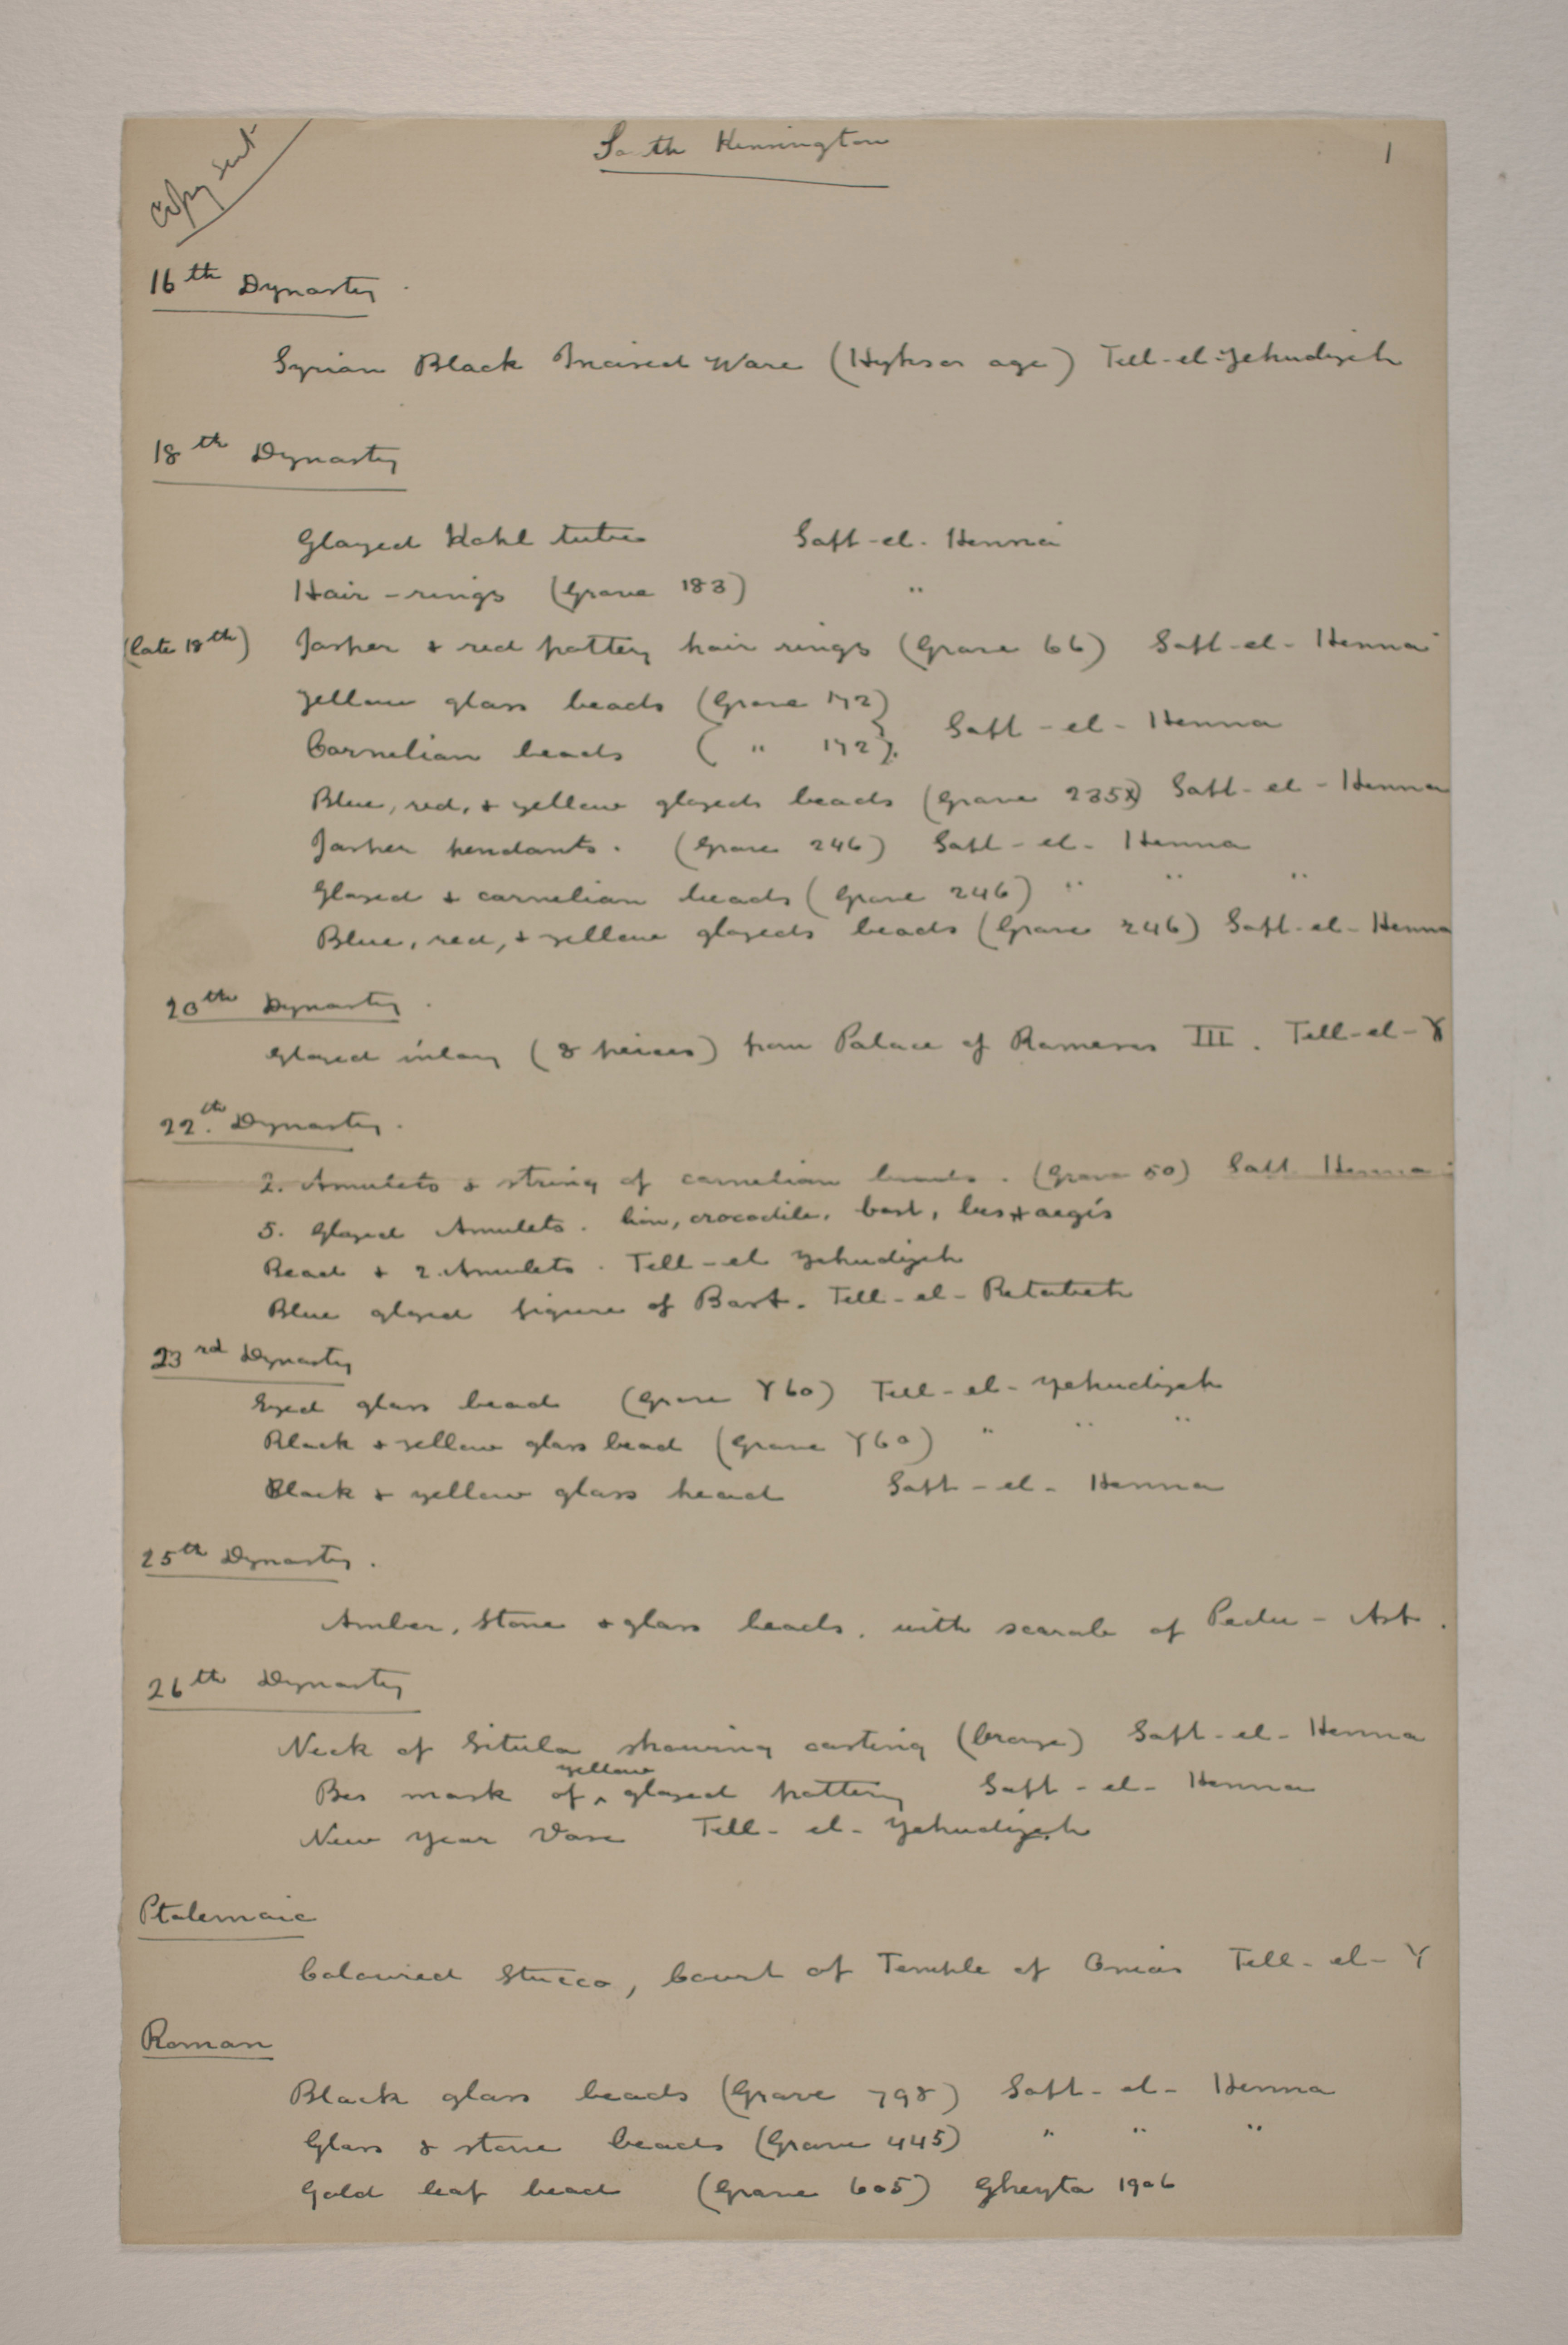 Copy sent
South Kensington
1
16th Dynasty.
Syrian Black Incised Ware (Hyksos age) Tell-el-Yehudiyeh
18th Dynasty
Glazed Kohl tube Saft-el-Henna
Hair-rings (Grave 183) "
(late 18th) Jasper & red pottery hair rings (Grave 66) Saft-el-Henna
Yellow glass beads (Grave 172)
Carnelian beads ( " 172 ). Saft-el-Henna
Blue, red, & yellow glazed beads (Grave 235) Saft-el-Henna
Jasper pendants. (Grave 246) Saft-el-Henna
Glazed & carnelian beads (Grave 246) " " "
Blue, red, & yellow glazed beads (Grave 246) Saft-el-Henna
20th Dynasty.
Glazed inlay (8 peices) from Palace of Rameses III. Tell-el-Y
22th Dynasty.
2. Amulets & string of carnelian beads. (Grave 50) Saft Henna
5. Glazed Amulets. lion, crocodile, bast, bes & aegis
Bead & 2 Amulets. Tell-el Yehudiyeh
Blue glazed figure of Bast. Tell-el-Retabeh
23rd Dynasty
Eyed glass bead (Grave Y60) Tell-el-Yehudiyeh
Black & yellow glass bead (Grave Y60) " " "
Black & yellow glass bead Saft-el-Henna
25th Dynasty.
Amber, stone & glass beads, with scarab of Pedu-Ast.
26th Dynasty
Neck of Situla showing casting (bronze) Saft-el-Henna
Bes mask of yellow glazed pottery Saft-el-Henna
New Year Vase Tell-el-Yehudiyeh
Ptolemaic
Coloured Stucco, Court of Temple of Onias Tell-el-Y
Roman
Black glass beads (Grave 798) Saft-el-Henna
Glass & stone beads (Grave 445) " " "
Gold leaf bead (Grave 605) Gheyta 1906